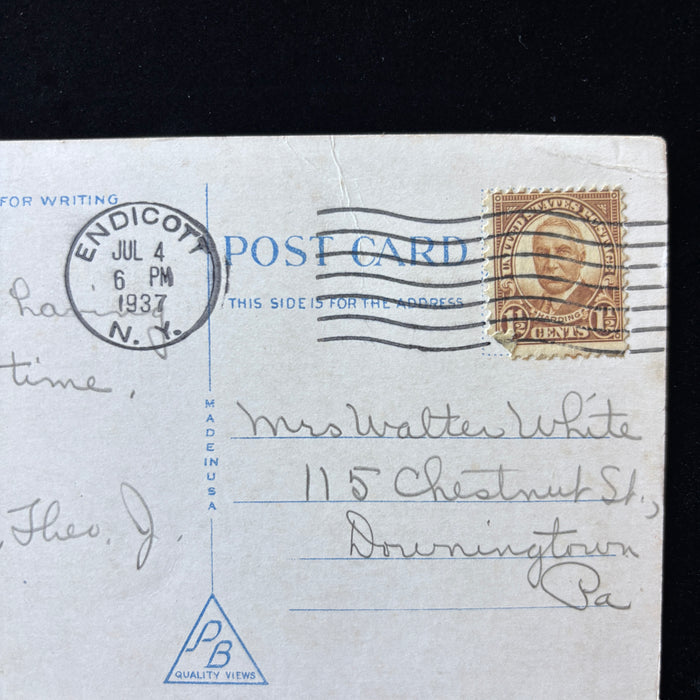 FOR WRITING
ENDICOTT
JUL 4
6 PM
1937
N. Y.
having
time.
Theo. J.
POST CARD
THIS SIDE IS FOR THE ADDRESS
MADE IN USA
UNITED STATES POSTAGE
HARDING
1½ CENTS 1½
Mrs Walter White
115 Chestnut St.,
Downingtown
Pa
PB
QUALITY VIEWS